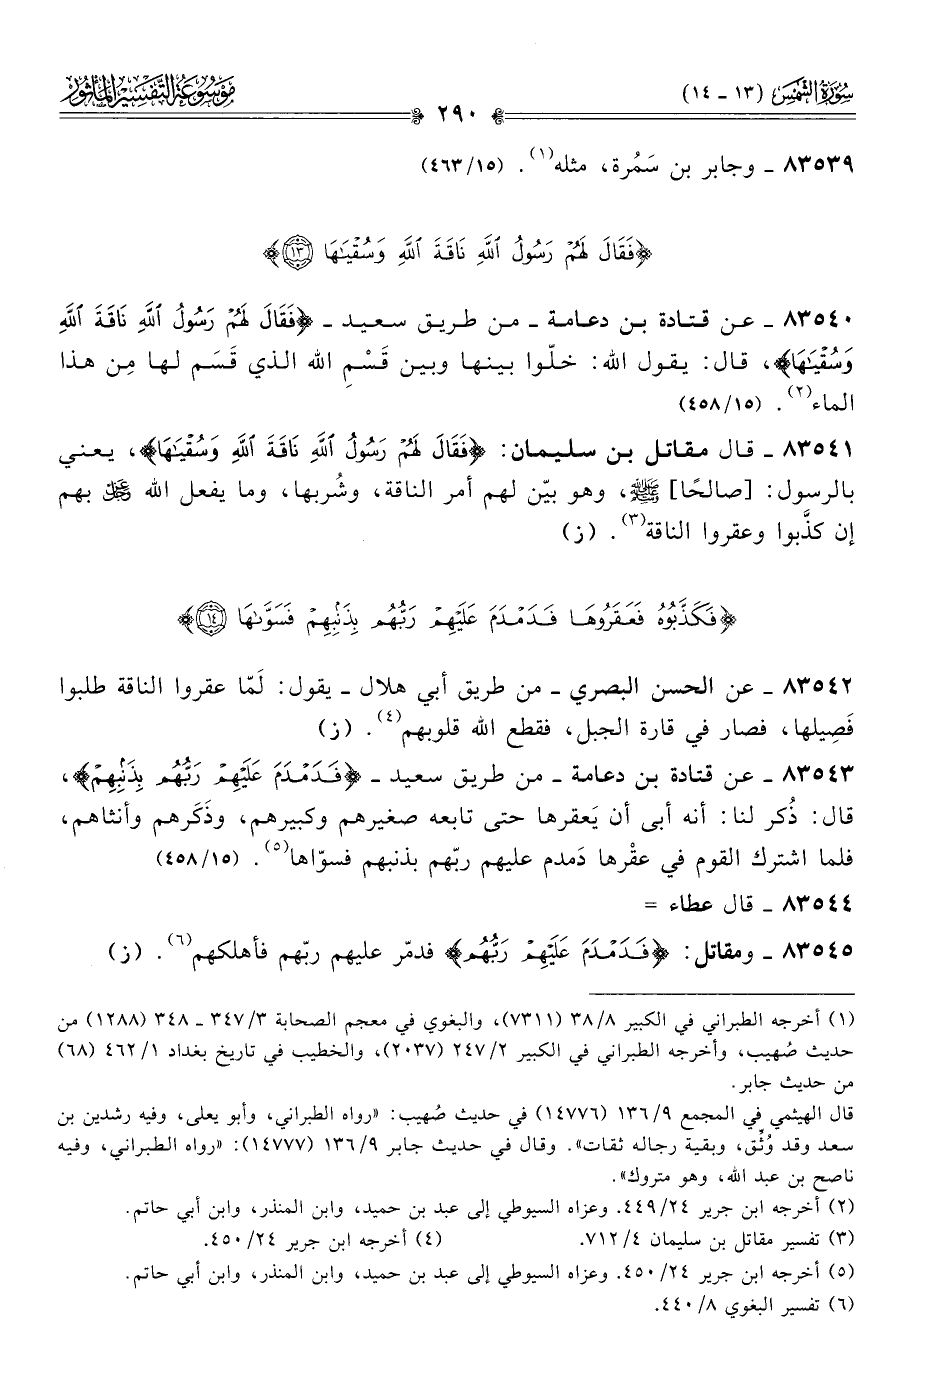 سورة الشمس (١٣ - ١٤)
موسوعة التفسير المأثور
٢٩٠
٨٣٥٣٩ ـ وجابر بن سَمُرة، مثله(١). (١٥/ ٤٦٣)
﴿فَقَالَ لَهُمْ رَسُولُ ٱللَّهِ نَاقَةَ ٱللَّهِ وَسُقْيَٰهَا ١٣﴾
٨٣٥٤٠ ـ عن قتادة بن دعامة ـ من طريق سعيد ـ ﴿فَقَالَ لَهُمْ رَسُولُ ٱللَّهِ نَاقَةَ ٱللَّهِ
وَسُقْيَٰهَا﴾، قال: يقول الله: خلّوا بينها وبين قَسْمِ الله الذي قَسَم لها مِن هذا
الماء(٢). (١٥/ ٤٥٨)
٨٣٥٤١ ـ قال مقاتل بن سليمان: ﴿فَقَالَ لَهُمْ رَسُولُ ٱللَّهِ نَاقَةَ ٱللَّهِ وَسُقْيَٰهَا﴾، يعني
بالرسول: [صالحًا] ﷺ، وهو بيّن لهم أمر الناقة، وشُربها، وما يفعل الله ﷻ بهم
إن كذَّبوا وعقروا الناقة(٣). (ز)
﴿فَكَذَّبُوهُ فَعَقَرُوهَا فَدَمْدَمَ عَلَيْهِمْ رَبُّهُم بِذَنۢبِهِمْ فَسَوَّىٰهَا ١٤﴾
٨٣٥٤٢ ـ عن الحسن البصري ـ من طريق أبي هلال ـ يقول: لَمّا عقروا الناقة طلبوا
فَصِيلها، فصار في قارة الجبل، فقطع الله قلوبهم(٤). (ز)
٨٣٥٤٣ ـ عن قتادة بن دعامة ـ من طريق سعيد ـ ﴿فَدَمْدَمَ عَلَيْهِمْ رَبُّهُم بِذَنۢبِهِمْ﴾،
قال: ذُكر لنا: أنه أبى أن يَعقرها حتى تابعه صغيرهم وكبيرهم، وذَكَرهم وأنثاهم،
فلما اشترك القوم في عقْرها دَمدم عليهم ربّهم بذنبهم فسوّاها(٥). (١٥/ ٤٥٨)
٨٣٥٤٤ ـ قال عطاء =
٨٣٥٤٥ ـ ومقاتل: ﴿فَدَمْدَمَ عَلَيْهِمْ رَبُّهُم﴾ فدمّر عليهم ربّهم فأهلكهم(٦). (ز)
(١) أخرجه الطبراني في الكبير ٨/ ٣٨ (٧٣١١)، والبغوي في معجم الصحابة ٣/ ٣٤٧ ـ ٣٤٨ (١٢٨٨) من
حديث صُهيب، وأخرجه الطبراني في الكبير ٢/ ٢٤٧ (٢٠٣٧)، والخطيب في تاريخ بغداد ١/ ٤٦٢ (٦٨)
من حديث جابر.
قال الهيثمي في المجمع ٩/ ١٣٦ (١٤٧٧٦) في حديث صُهيب: «رواه الطبراني، وأبو يعلى، وفيه رشدين بن
سعد وقد وُثِّق، وبقية رجاله ثقات». وقال في حديث جابر ٩/ ١٣٦ (١٤٧٧٧): «رواه الطبراني، وفيه
ناصح بن عبد الله، وهو متروك».
(٢) أخرجه ابن جرير ٢٤/ ٤٤٩. وعزاه السيوطي إلى عبد بن حميد، وابن المنذر، وابن أبي حاتم.
(٣) تفسير مقاتل بن سليمان ٤/ ٧١٢. (٤) أخرجه ابن جرير ٢٤/ ٤٥٠.
(٥) أخرجه ابن جرير ٢٤/ ٤٥٠. وعزاه السيوطي إلى عبد بن حميد، وابن المنذر، وابن أبي حاتم.
(٦) تفسير البغوي ٨/ ٤٤٠.